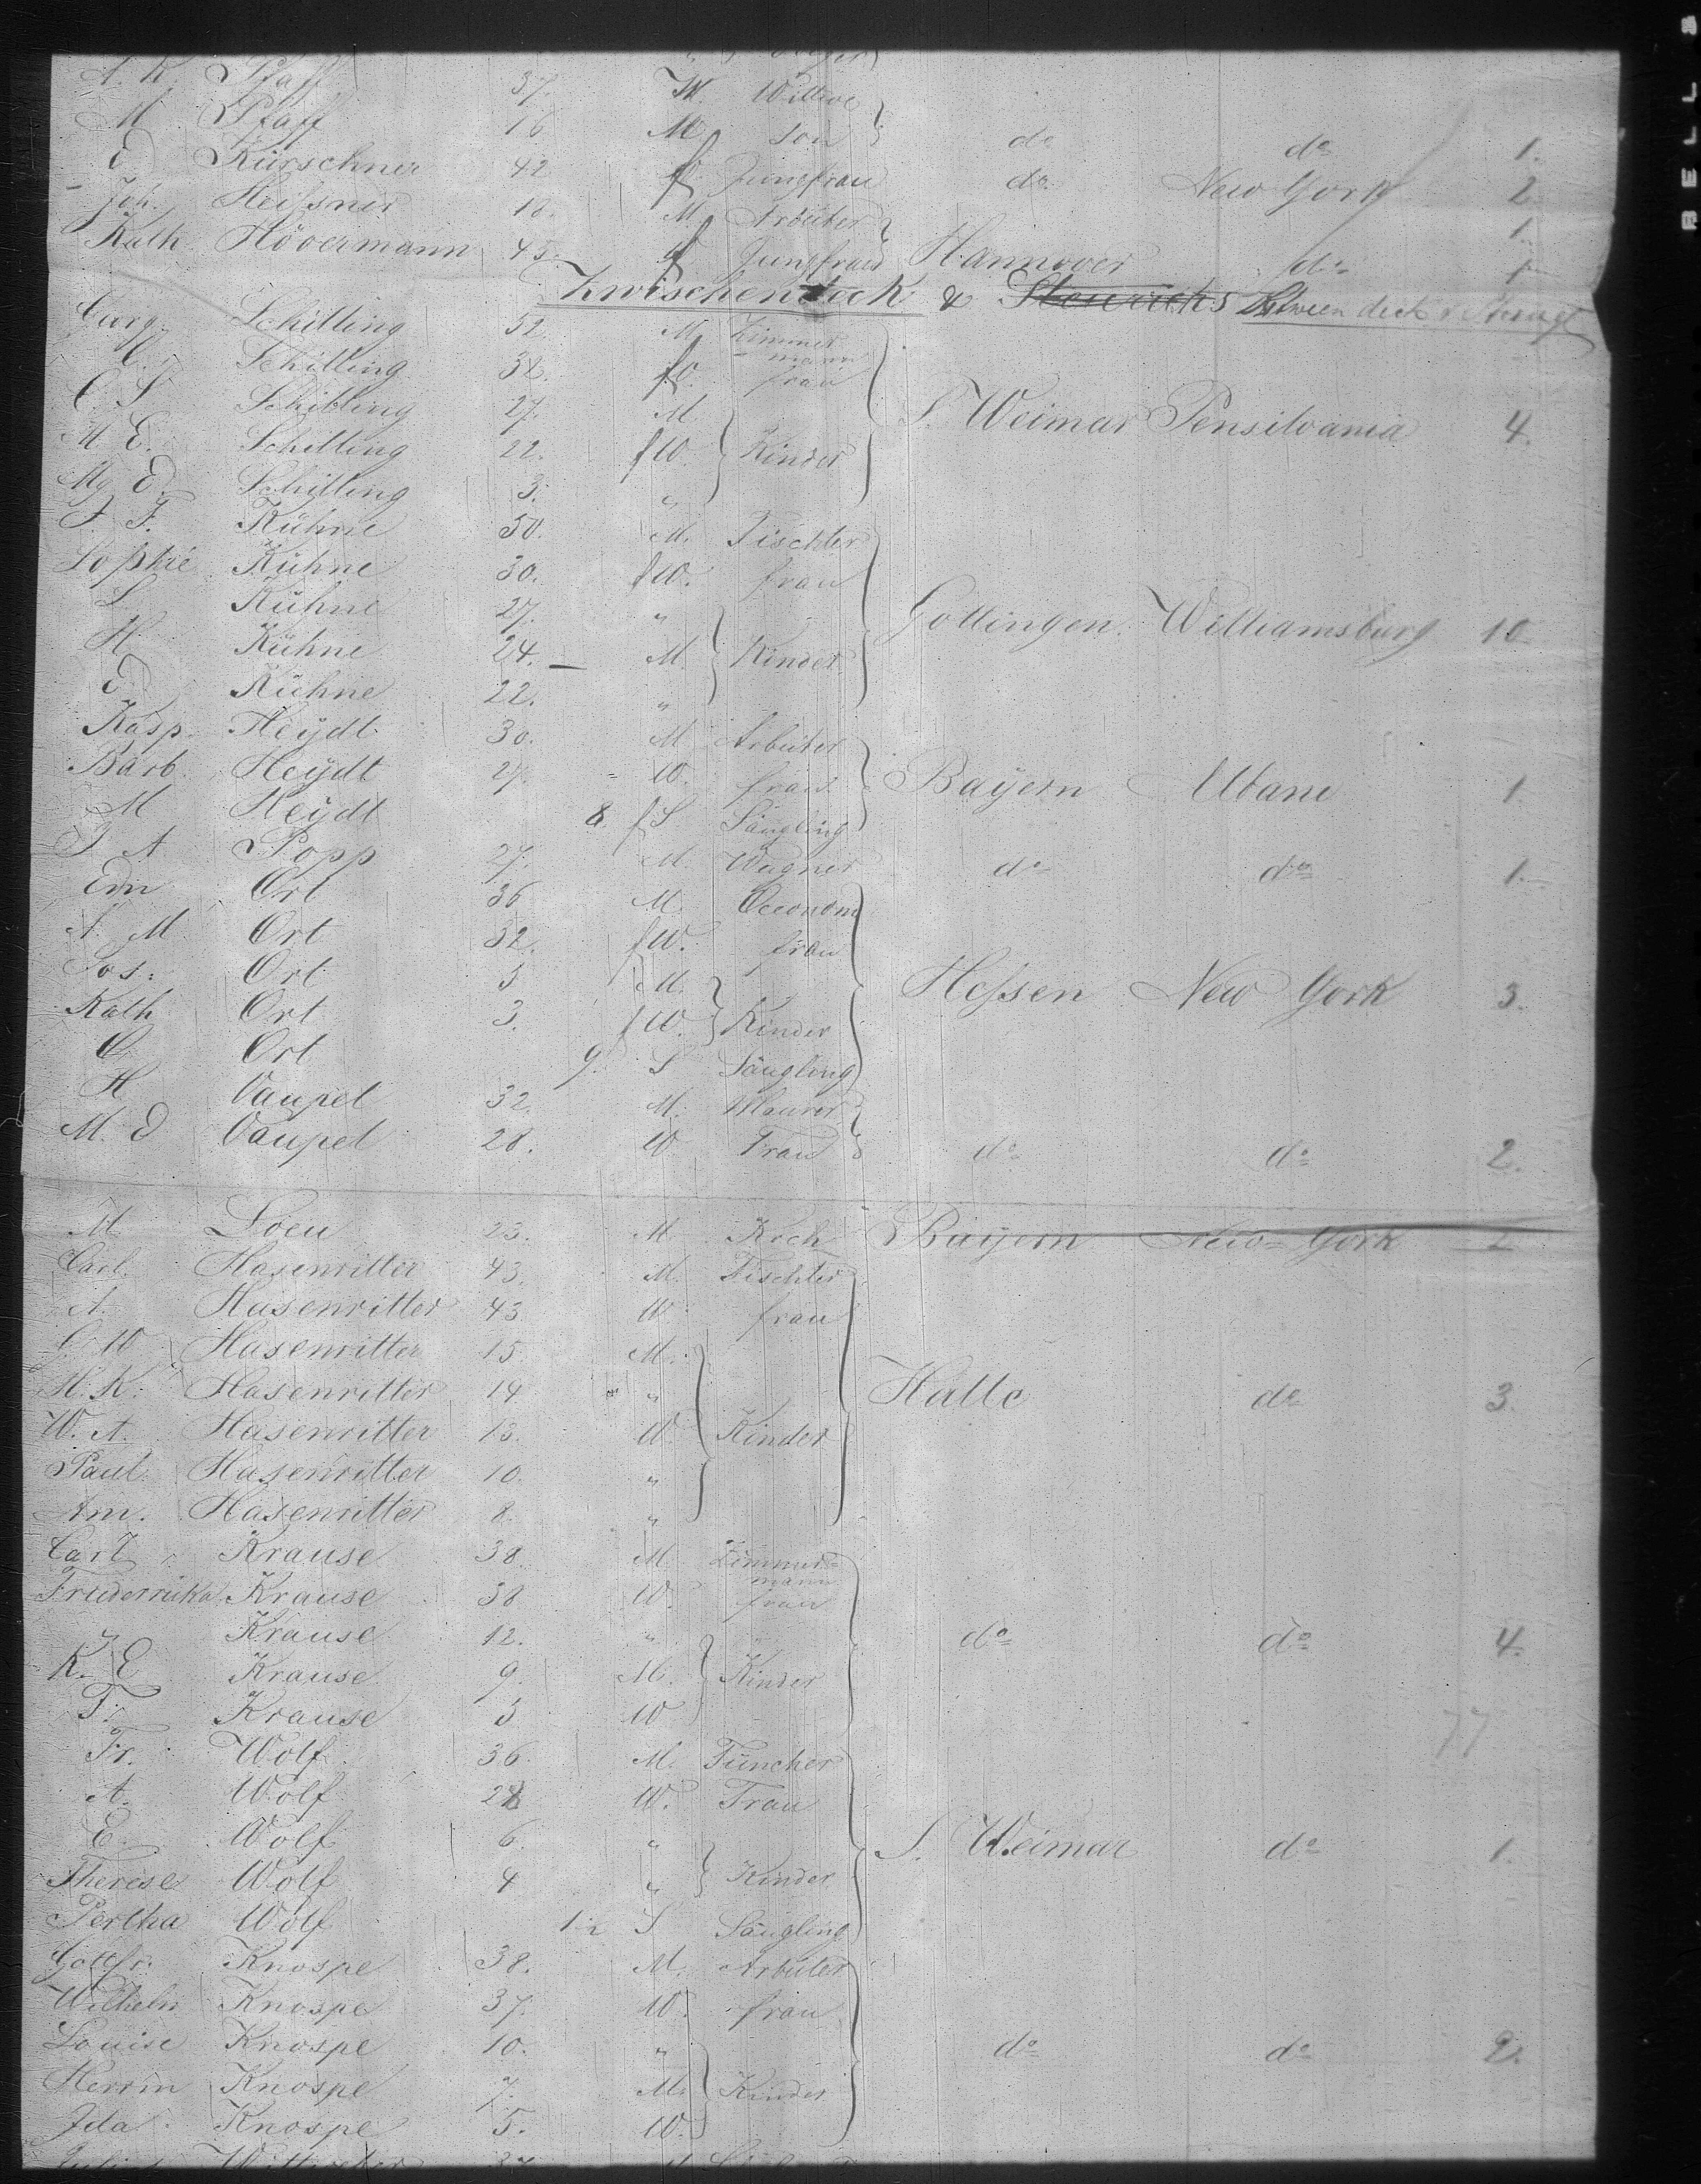 A. K. Pfaff 37. W. Wittwe
M Pfaff 16 M Son do do 1.
E Kürschner 42 W Jungfrau do New York 2
Joh. Heissner 18. M Arbeiter 1
Kath Hövermann 45. Jungfrau Hannover do 1
Zwischendeck & Between deck &
Schilling 52. M Zimmer
mann
C. Schilling 38. W. frau
C. S Schilling 27. M S. Weimar Pensilvania 4.
M E. Schilling 22. W. Kinder
Schilling 3. "
F. Kühne 50. M. Tischler
Sophie Kühne 30. W. frau
S Kühne 27. " Gottingen Williamsburg 10
H Kühne 24. M Kinder
E. Kühne 22. "
Kasp. Heydt 30. M Arbeiter
Barb. Heydt 27. W. frau Bayern Albani 1.
M Heydt 8. S Säugling
J A Popp 27. M. Wagner do do 1.
Edm Ort 36 M. Oeconom
A. M Ort 32. W. frau
Jos: Ort 5 M. Hessen New York 3.
Kath Ort 3. W. Kinder
C Ort 9. S Säugling
H Vaupel 32. M. Maurer
M. E Vaupel 28. W. Frau do do 2.
M Loeu 23. M Koch Bayern New-York
Carl. Hasenritter 43. M. Tischler
A. Hasenritter 43 W frau
W Hasenritter 15 M.
H. K. Hasenritter 14 " Halle do 3.
W. A. Hasenritter 13. W. Kinder
Paul. Hasenritter 10. "
Am. Hasenritter 8. "
Carl Krause 38. M Zimmer-
mann
Friederricka Krause 38 W. frau
Krause 12. " do do 4.
K. E Krause 9. M. Kinder
F. Krause 3 W
77
Fr. Wolf 36. M. Tüncher
A. Wolf 28 W. Frau
E. Wolf 6. " S. Weimar do 1.
Therese Wolf 4 " Kinder
Pertha Wolf S Säugling
Gottfr. Knospe 38. M. Arbeiter
Wilhelm Knospe 37. W. frau
Louise Knospe 10. " do do 2.
Herrm Knospe 7. M. Kinder
Ida Knospe 5. W.